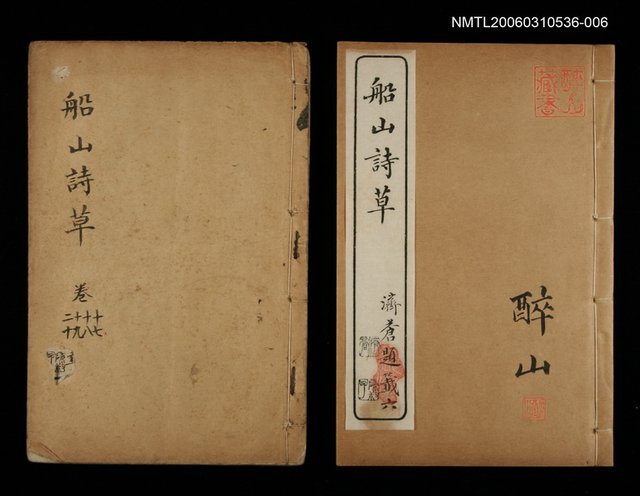 NMTL20060310536-006
船山詩草
卷
十七
十八
十九
二十
船山詩草
濟蒼題籤六
醉山